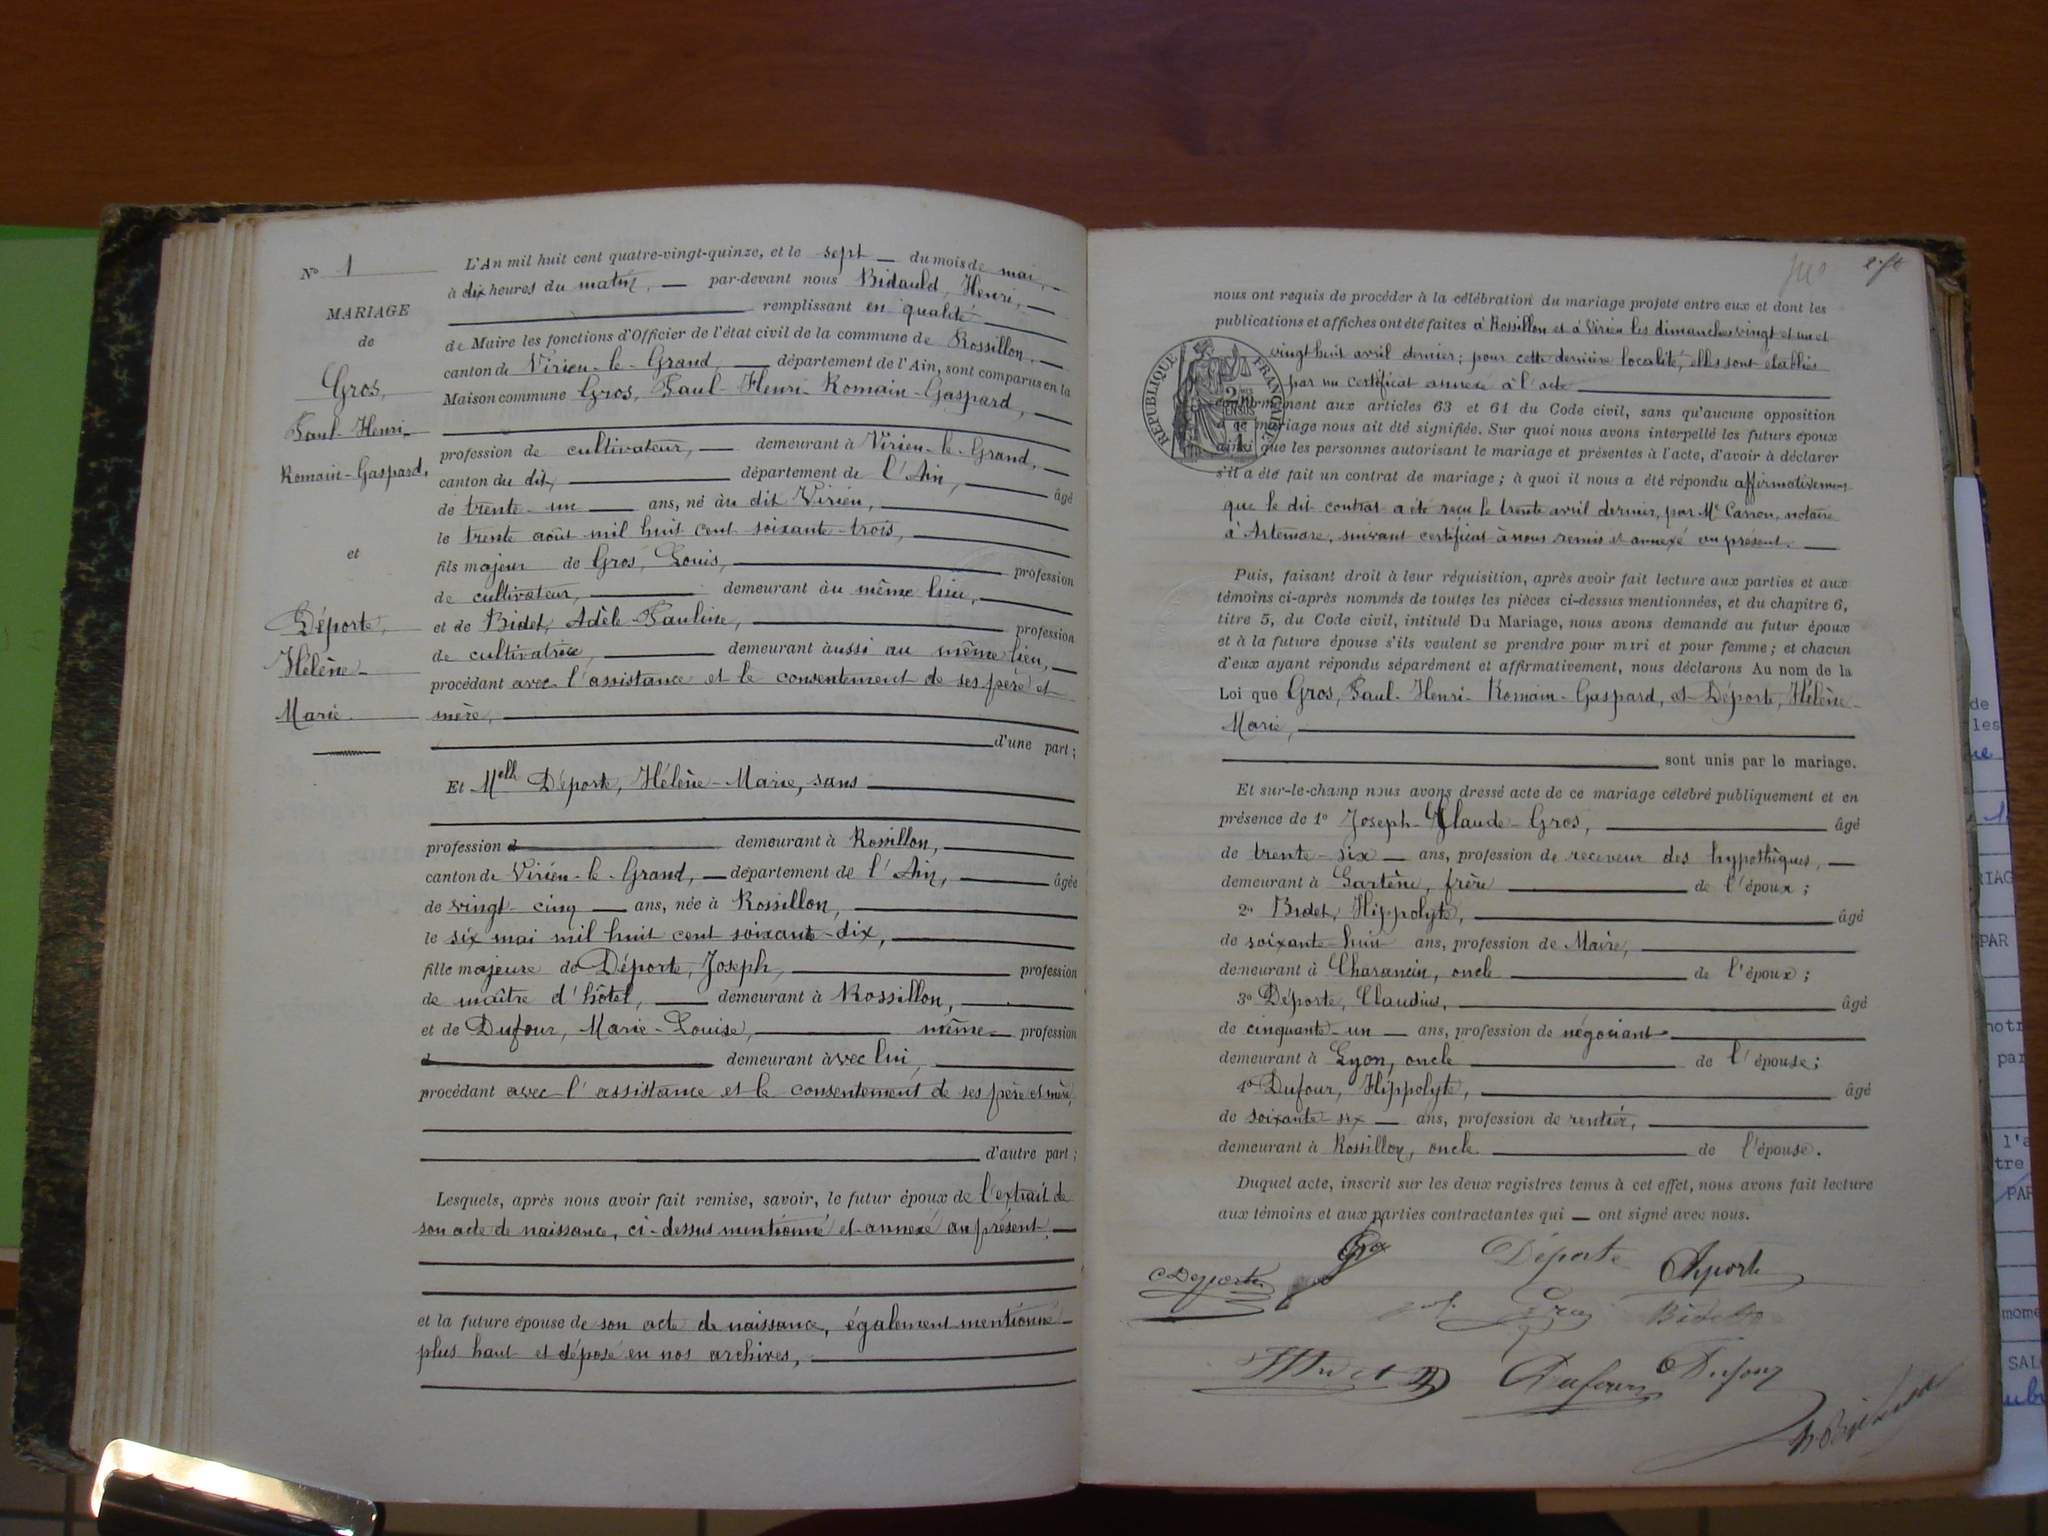 N° 1
MARIAGE
de
Gros,
Paul-Henri-
Romain-Gaspard,
et
Déporte,
Hélène-
Marie
L'An mil huit cent quatre-vingt-quinze, et le sept du mois de mai,
à dix heures du matin, par-devant nous Bidauld, Henri,
remplissant en qualité
de Maire les fonctions d'Officier de l'état civil de la commune de Rossillon,
canton de Virieu-le-Grand, département de l'Ain, sont comparus en la
Maison commune Gros, Paul-Henri-Romain-Gaspard,
profession de cultivateur, demeurant à Virieu-le-Grand,
canton du dit, département de l'Ain, âgé
de trente-un ans, né au dit Virieu,
le trente août mil huit cent soixante-trois,
fils majeur de Gros, Louis, profession
de cultivateur, demeurant au même lieu,
et de Bidet, Adèle-Pauline, profession
de cultivatrice, demeurant aussi au même lieu,
procédant avec l'assistance et le consentement de ses père et
mère,
d'une part;
Et Melle Déporte, Hélène-Marie, sans
profession d demeurant à Rossillon,
canton de Virieu-le-Grand, département de l'Ain, âgée
de vingt-cinq ans, née à Rossillon,
le six mai mil huit cent soixante-dix,
fille majeure de Déporte, Joseph, profession
de maître d'hôtel, demeurant à Rossillon,
et de Dufour, Marie-Louise, même profession
d demeurant avec lui,
procédant avec l'assistance et le consentement de ses père et mère,
d'autre part;
Lesquels, après nous avoir fait remise, savoir, le futur époux de l'extrait de
son acte de naissance, ci-dessus mentionné et annexé au présent,
et la future épouse de son acte de naissance, également mentionné
plus haut et déposé en nos archives,
nous ont requis de procéder à la célébration du mariage projeté entre eux et dont les
publications et affiches ont été faites à Rossillon et à Virieu les dimanches vingt et un et
vingt-huit avril dernier; pour cette dernière localité, elles sont établies
par un certificat annexé à l'acte
RÉPUBLIQUE FRANÇAISE
conformément aux articles 63 et 64 du Code civil, sans qu'aucune opposition
à ce mariage nous ait été signifiée. Sur quoi nous avons interpellé les futurs époux
ainsi que les personnes autorisant le mariage et présentes à l'acte, d'avoir à déclarer
s'il a été fait un contrat de mariage; à quoi il nous a été répondu affirmativement
que le dit contrat a été reçu le trente avril dernier, par Me Carron, notaire
à Artemare, suivant certificat à nous remis et annexé au présent.
Puis, faisant droit à leur réquisition, après avoir fait lecture aux parties et aux
témoins ci-après nommés de toutes les pièces ci-dessus mentionnées, et du chapitre 6,
titre 5, du Code civil, intitulé Du Mariage, nous avons demandé au futur époux
et à la future épouse s'ils veulent se prendre pour mari et pour femme; et chacun
d'eux ayant répondu séparément et affirmativement, nous déclarons Au nom de la
Loi que Gros, Paul-Henri-Romain-Gaspard, et Déporte, Hélène-
Marie,
sont unis par le mariage.
Et sur-le-champ nous avons dressé acte de ce mariage célébré publiquement et en
présence de 1° Joseph-Claude-Gros, âgé
de trente-six ans, profession de receveur des hypothèques,
demeurant à Sartène, frère de l'époux;
2° Bidet, Hippolyte, âgé
de soixante-huit ans, profession de Maire,
demeurant à Charancin, oncle de l'époux;
3° Déporte, Claudius, âgé
de cinquante-un ans, profession de négociant
demeurant à Lyon, oncle de l'épouse;
4° Dufour, Hippolyte, âgé
de soixante-six ans, profession de rentier,
demeurant à Rossillon, oncle de l'épouse.
Duquel acte, inscrit sur les deux registres tenus à cet effet, nous avons fait lecture
aux témoins et aux parties contractantes qui ont signé avec nous.
Déporte
C Deporte
Gros
Bidet
Dufour
Dufour